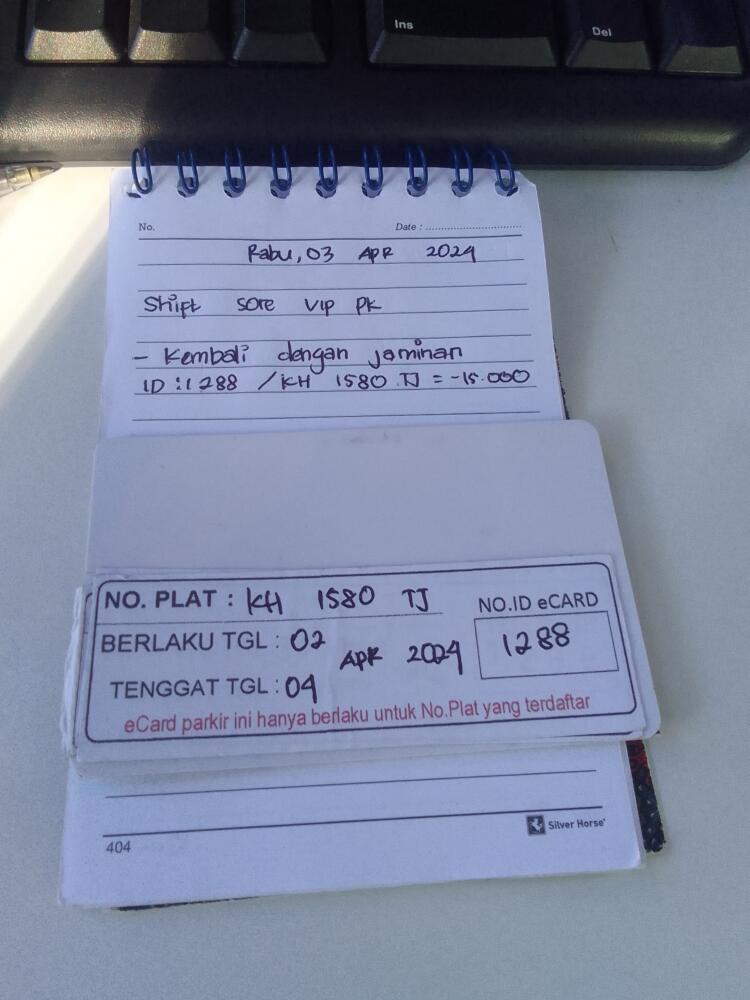 Ins
Del
No.
Date : ................................
Rabu, 03 APR 2024
Shift sore VIP PK
- Kembali dengan jaminan
ID : 1288 / KH 1580 TJ = -15.000
NO. PLAT : KH 1580 TJ
NO.ID eCARD
1288
BERLAKU TGL : 02
APR 2024
TENGGAT TGL : 04
eCard parkir ini hanya berlaku untuk No.Plat yang terdaftar
Silver Horse
404